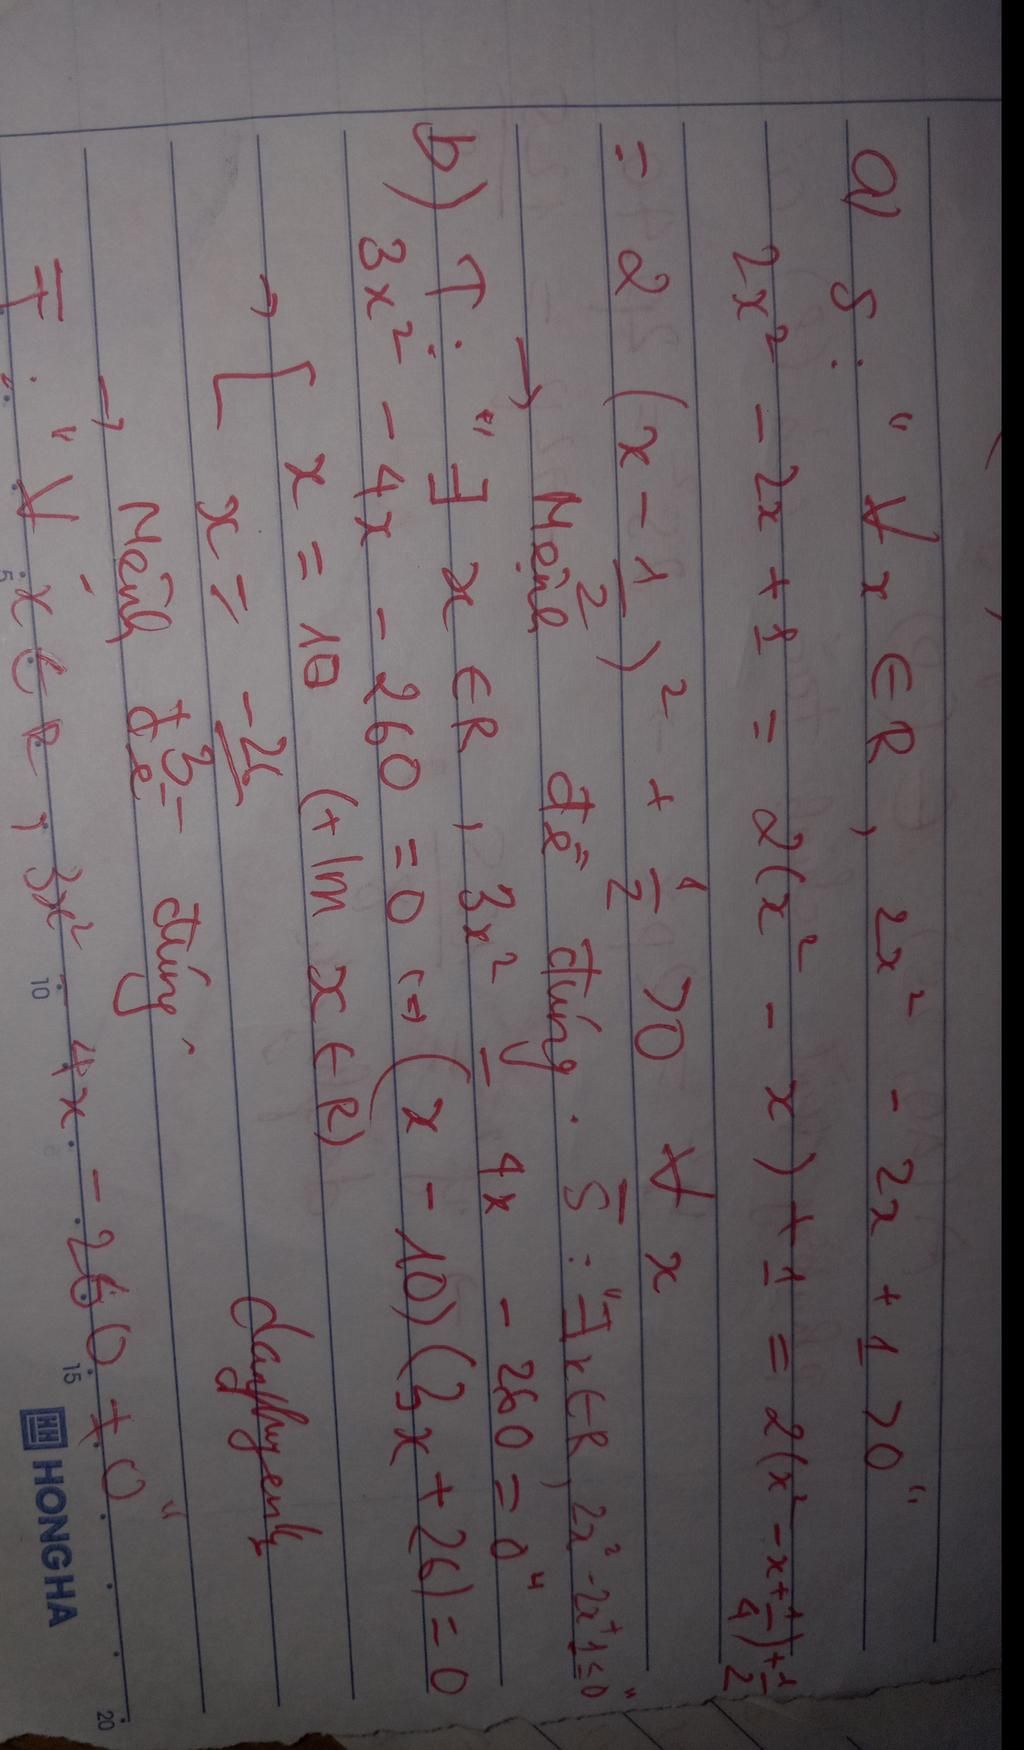 a) S: "∀ x ∈ R, 2x² - 2x + 1 > 0"
2x² - 2x + 1 = 2(x² - x) + 1 = 2(x² - x + 1/4) + 1/2
= 2(x - 1/2)² + 1/2 > 0 ∀ x
→ Mệnh đề đúng. S̅: "∃ x ∈ R, 2x² - 2x + 1 ≤ 0"
b) T: "∃ x ∈ R, 3x² - 4x - 260 = 0"
3x² - 4x - 260 = 0 <=> (x - 10)(3x + 26) = 0
→ [ x = 10 (t/m x ∈ R)
x = -26/3
danghyenly
→ Mệnh đề đúng.
T̅: "∀ x ∈ R, 3x² - 4x - 260 ≠ 0"
5 10 15 20
HH HONGHA